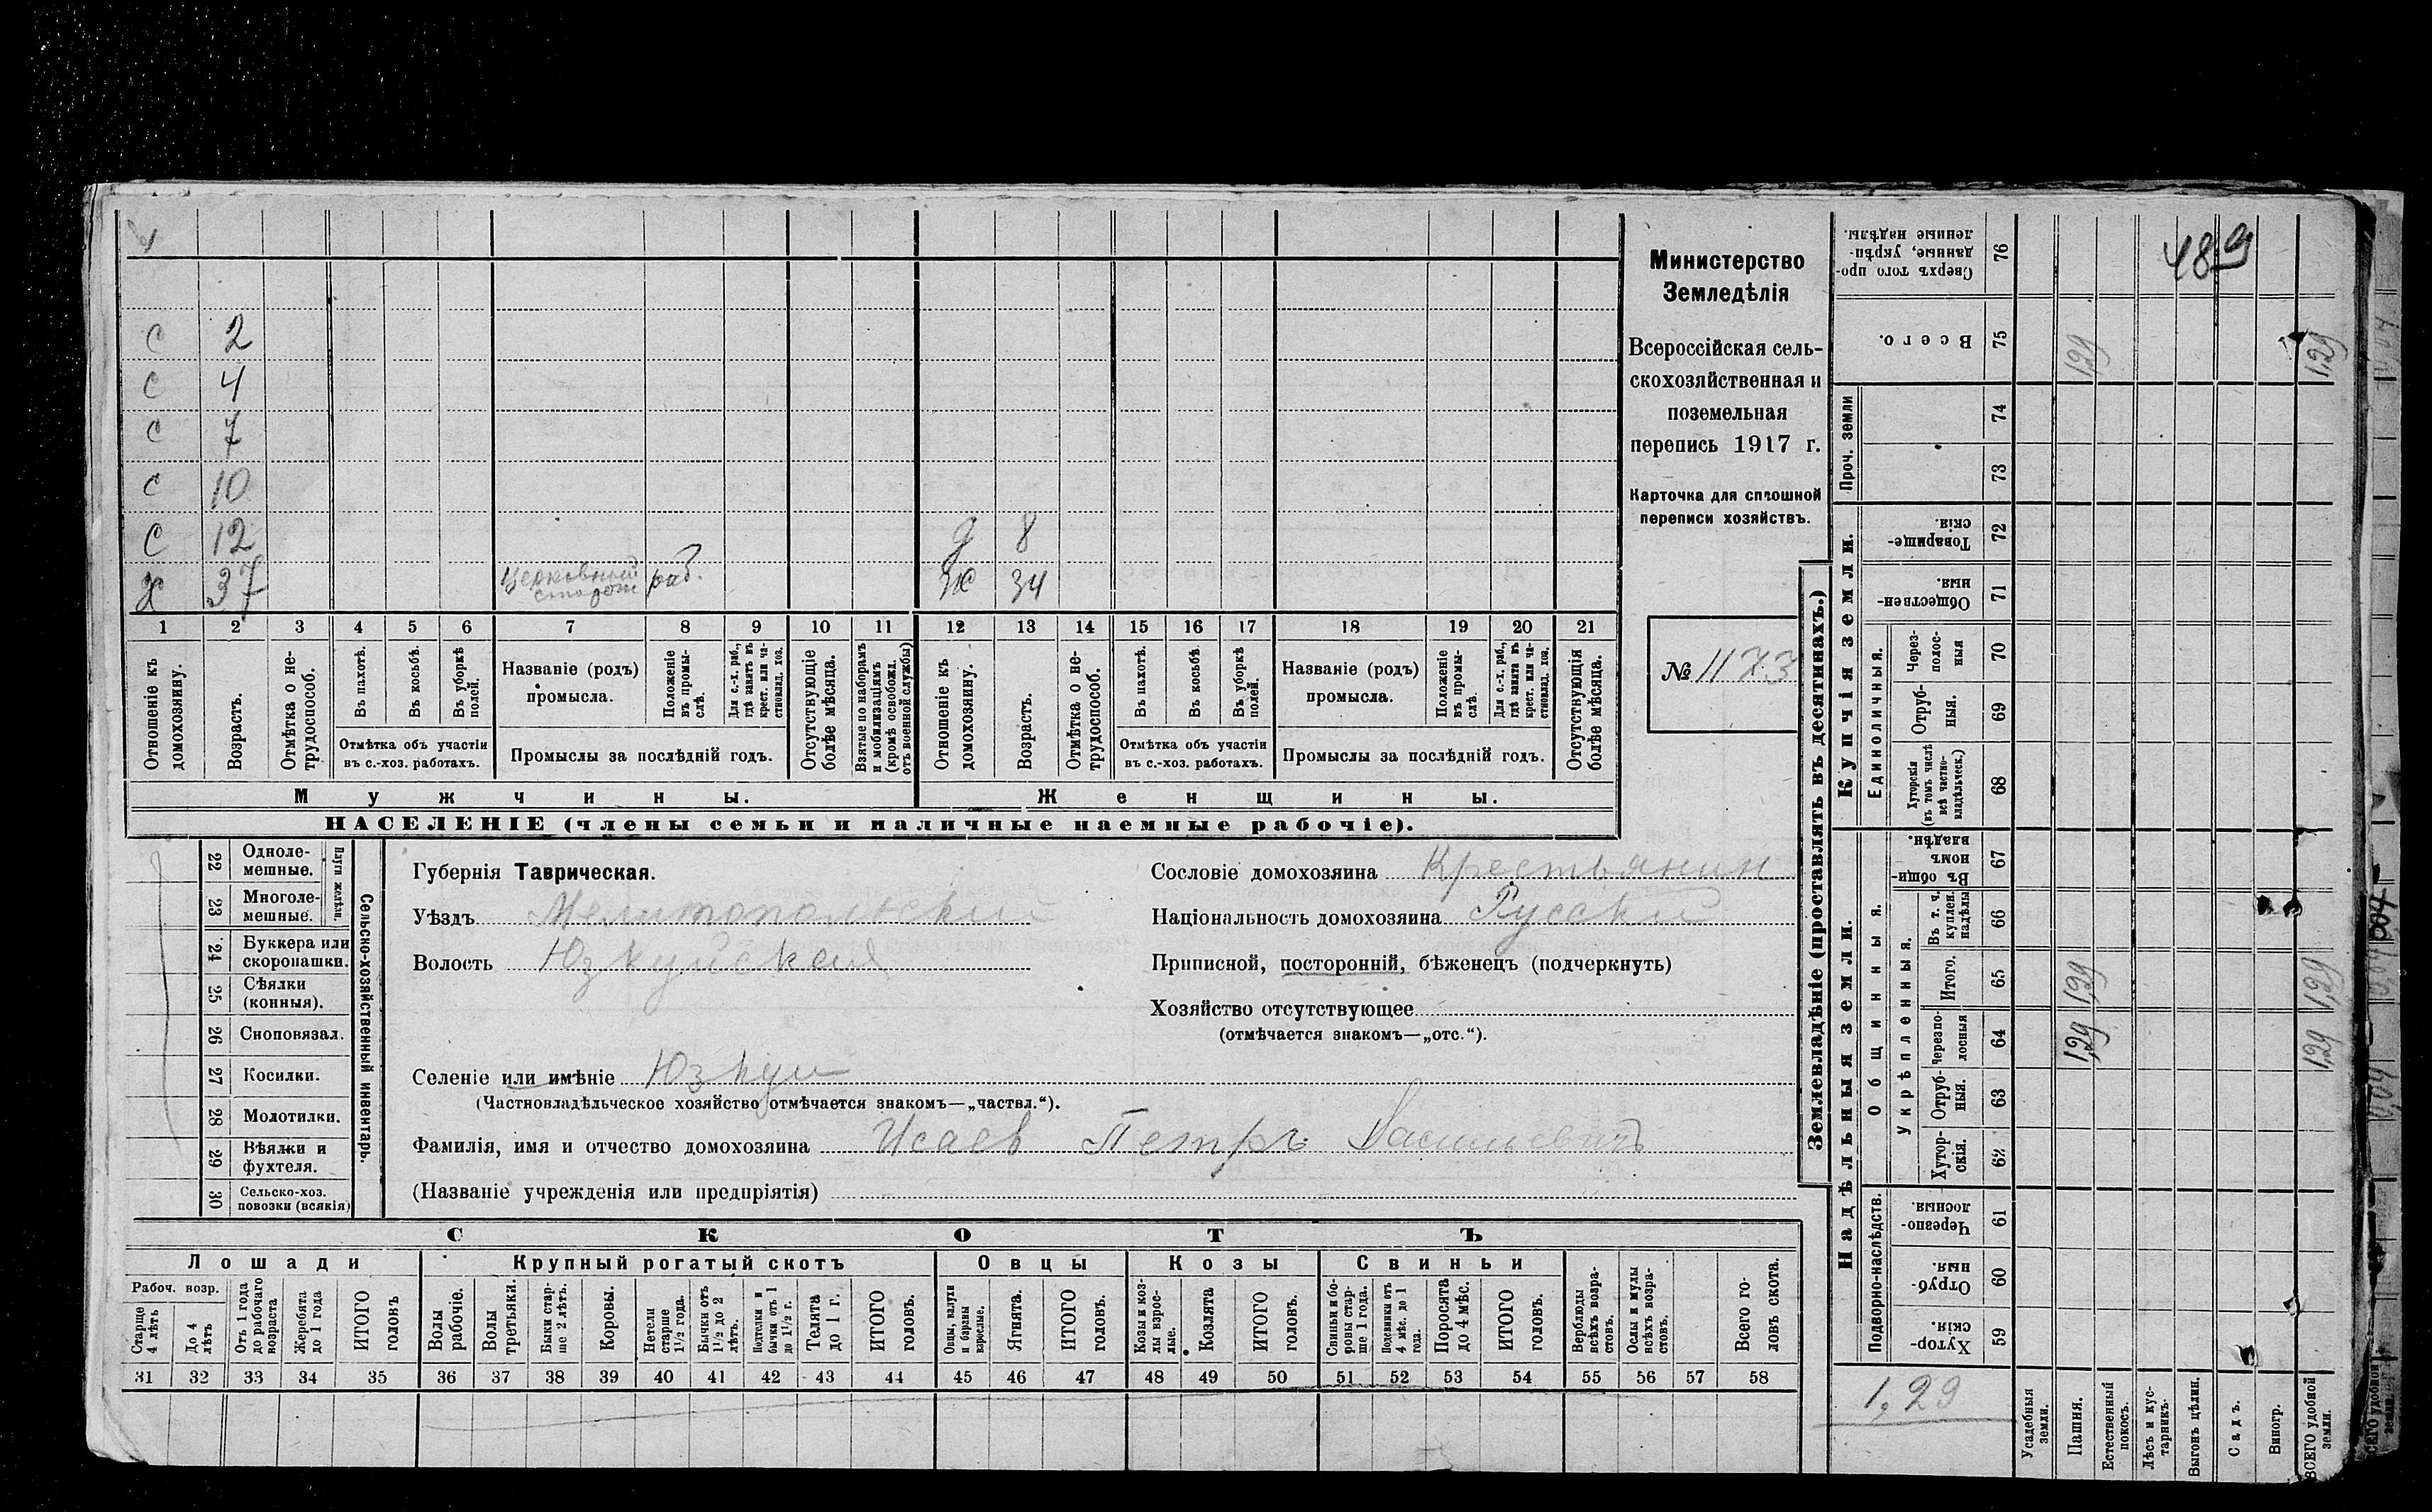 С 2
С 4
С 7
С 10
С 12 д 8
х 37 церковный сторож раб. ж 34
1 2 3 4 5 6 7 8 9 10 11 12 13 14 15 16 17 18 19 20 21
Отношеніе къ домохозяину.
Возрастъ.
Отмѣтка о не-трудоспособ.
Въ пахотѣ.
Въ косьбѣ.
Въ уборкѣ полей.
Отмѣтка объ участіи
въ с.-хоз. работахъ.
Названіе (родъ)
промысла.
Положеніе въ промы-слѣ.
Для с.-х. раб., гдѣ занятъ въ крест. или ча-стновлад. хоз.
Промыслы за послѣдній годъ.
Отсутствующіе болѣе мѣсяца.
Взятые по наборамъ и мобилизаціямъ (кромѣ освобожд. отъ военной службы)
Отношеніе къ домохозяину.
Возрастъ.
Отмѣтка о не-трудоспособ.
Въ пахотѣ.
Въ косьбѣ.
Въ уборкѣ полей.
Отмѣтка объ участіи
въ с.-хоз. работахъ.
Названіе (родъ)
промысла.
Положеніе въ промы-слѣ.
Для с.-х. раб., гдѣ занята въ крест. или ча-стновлад. хоз.
Промыслы за послѣдній годъ.
Отсутствующія болѣе мѣсяца.
Мужчины. Женщины.
НАСЕЛЕНІЕ (члены семьи и наличные наемные рабочіе).
Министерство
Земледѣлія
Всероссійская сель-
скохозяйственная и
поземельная
перепись 1917 г.
Карточка для сплошной
переписи хозяйствъ.
№ 1173
22 Одноле-мешные.
23 Многоле-мешные.
Плуги желѣзн.
24 Буккера или скоропашки.
25 Сѣялки (конныя).
26 Сноповязал.
27 Косилки.
28 Молотилки.
29 Вѣялки и фухтеля.
30 Сельско-хоз. повозки (всякія)
Сельско-хозяйственный инвентарь.
Губернія Таврическая.
Уѣздъ Мелитопольский
Волость Юзкуйская
Селеніе или имѣніе Юзкуи
(Частновладѣльческое хозяйство отмѣчается знакомъ—„частвл.“).
Фамилія, имя и отчество домохозяина Исаев Петръ Васильевичъ
(Названіе учрежденія или предпріятія)
Сословіе домохозяина Крестьянин
Національность домохозяина Русский
Приписной, посторонній, бѣженецъ (подчеркнуть)
Хозяйство отсутствующее
(отмѣчается знакомъ—„отс.“).
СКОТЪ
Лошади Крупный рогатый скотъ Овцы Козы Свиньи
Рабоч. возр.
Старше 4 лѣтъ
До 4 лѣтъ
Отъ 1 года до рабочаго возраста
Жеребята до 1 года
ИТОГО головъ
Волы рабочіе.
Волы третьяки.
Быки стар-ше 2 лѣтъ.
Коровы.
Нетели старше 1½ года.
Бычки отъ 1½ до 2 лѣтъ.
Подтелки и бычки отъ 1 до 1½ г.
Телята до 1 г.
ИТОГО головъ.
Овцы, валухи и бараны взрослые.
Ягнята.
ИТОГО головъ.
Козы и коз-лы взрос-лые.
Козлята
ИТОГО головъ.
Свиньи и бо-ровы стар-ше 1 года.
Подсвинки отъ 4 мѣс. до 1 года.
Поросята до 4 мѣс.
ИТОГО головъ.
Верблюды всѣхъ возра-стовъ.
Ослы и мулы всѣхъ возра-стовъ.
Всего го-ловъ скота.
31 32 33 34 35 36 37 38 39 40 41 42 43 44 45 46 47 48 49 50 51 52 53 54 55 56 57 58
Землевладѣніе (проставлять въ десятинахъ.)
Надѣльныя земли. Купчія земли. Проч. земли
Подворно-наслѣдств.
Общинныя.
Укрѣпленныя.
Единоличныя.
Сверхъ того про-данные, укрѣп-ленные надѣлы. 76 48 9
Всего. 75 1,29 1,29
74
73
Товарище-скія. 72
Обществен-ныя. 71
Через-полос-ныя 70
Отруб-ныя. 69
Хуторскія (въ томъ числѣ всѣ частно-владѣльческ.) 68
Въ общи-номъ владѣн. 67
Въ т. ч. куплен. надѣлы 66
Итого. 65 1,29 1,29
Черезпо-лосныя 64 1,29 1,29
Отруб-ныя. 63
Хутор-скія. 62
Черезпо-лосныя. 61
Отруб-ныя. 60
Хутор-скія. 59
1,29
Усадебныя земли.
Пашня.
Естественный покосъ.
Лѣсъ и кус-тарникъ.
Выгонъ цѣлин.
Садъ.
Виногр.
ВСЕГО удобной земли.